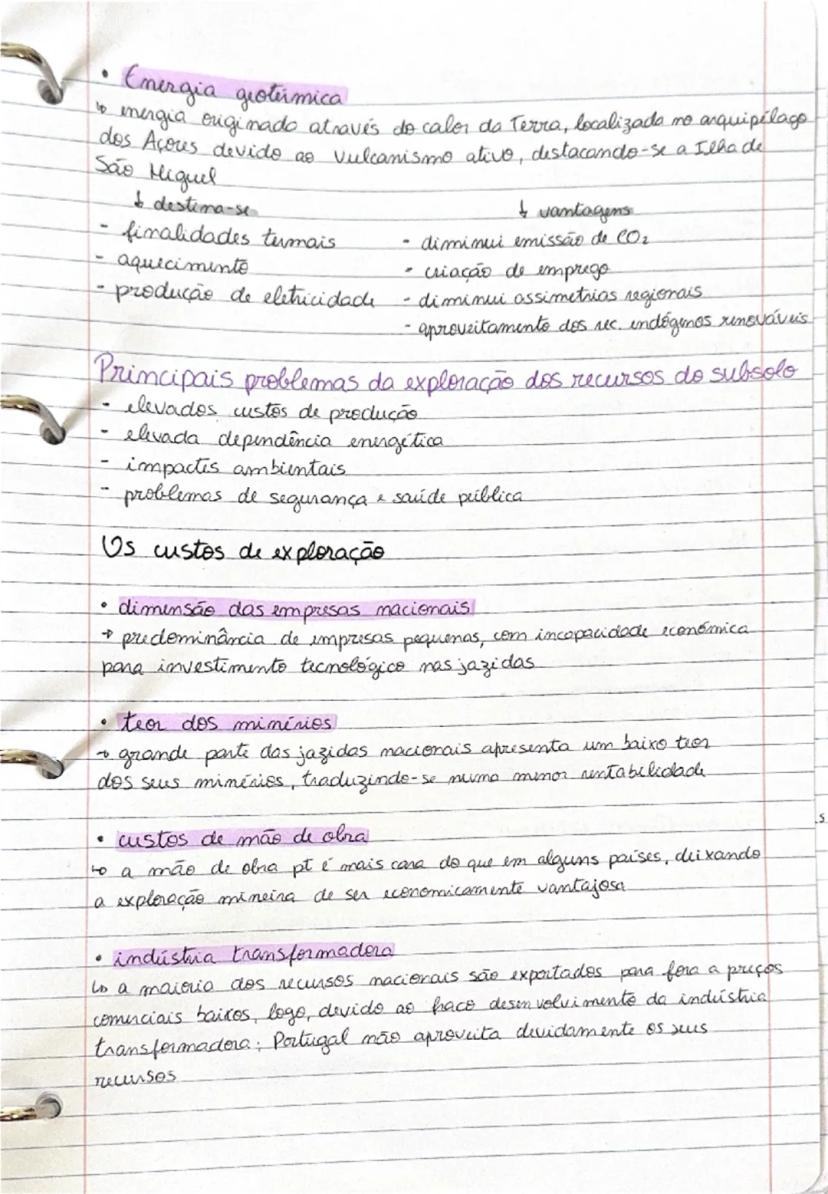 • Energia geotérmica
↳ energia originada através do calor da Terra, localizada no arquipélago
dos Açores devido ao vulcanismo ativo, destacando-se a Ilha de
São Miguel
↓ destina-se ↓ vantagens
- finalidades termais - diminui emissão de CO₂
- aquecimento - criação de emprego
- produção de eletricidade - diminui assimetrias regionais
- aproveitamento dos rec. endógenos renováveis
Principais problemas da exploração dos recursos do subsolo
- elevados custos de produção
- elevada dependência energética
- impactes ambientais
- problemas de segurança e saúde pública
Os custos de exploração
• dimensão das empresas nacionais
→ predominância de empresas pequenas, com incapacidade económica
para investimento tecnológico nas jazidas
• teor dos minérios
→ grande parte das jazidas nacionais apresenta um baixo teor
dos seus minérios, traduzindo-se numa menor rentabilidade
• custos de mão de obra
↳ a mão de obra pt é mais cara do que em alguns países, deixando
a exploração mineira de ser economicamente vantajosa
• indústria transformadora
↳ a maioria dos recursos nacionais são exportados para fora a preços
comerciais baixos, logo, devido ao fraco desenvolvimento da indústria
transformadora; Portugal não aproveita devidamente os seus
recursos